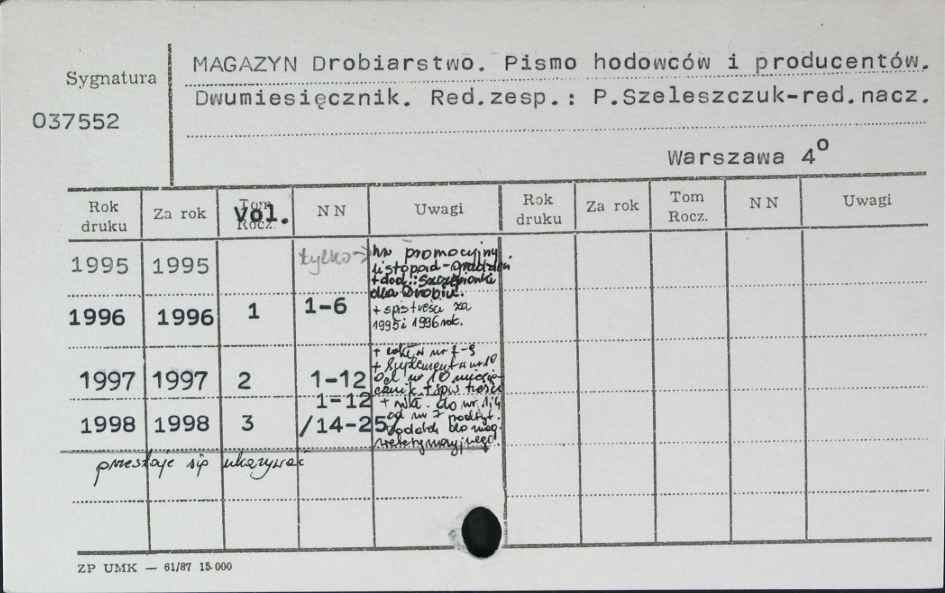 MAGAZYN Drobiarstwo. Pismo hodowców i producentów.
Sygnatura
Dwumiesięcznik. Red.zesp.: P.Szeleszczuk-red.nacz.
037552
Warszawa 4⁰
Rok druku Za rok Tom Rocz. Vol. NN Uwagi Rok druku Za rok Tom Rocz. NN Uwagi
1995 1995 tylko→ nr promocyjny
listopad-grudzień
+dod.: Szczepionki
dla Drobiu.
1996 1996 1 1-6 + spis treści za
1995 i 1996 rok.
+ wkł. w nr 7-9
+ Suplement w nr 10
1997 1997 2 1-12 Od nr 10 miesię-
cznik + spis treści
1-12 + wkł. do nr 1,4
1998 1998 3 /14-25/ od nr 7 podtyt.
dodatek do mag.
weterynaryjnego
przestaje się ukazywać
ZP UMK — 61/87 15.000